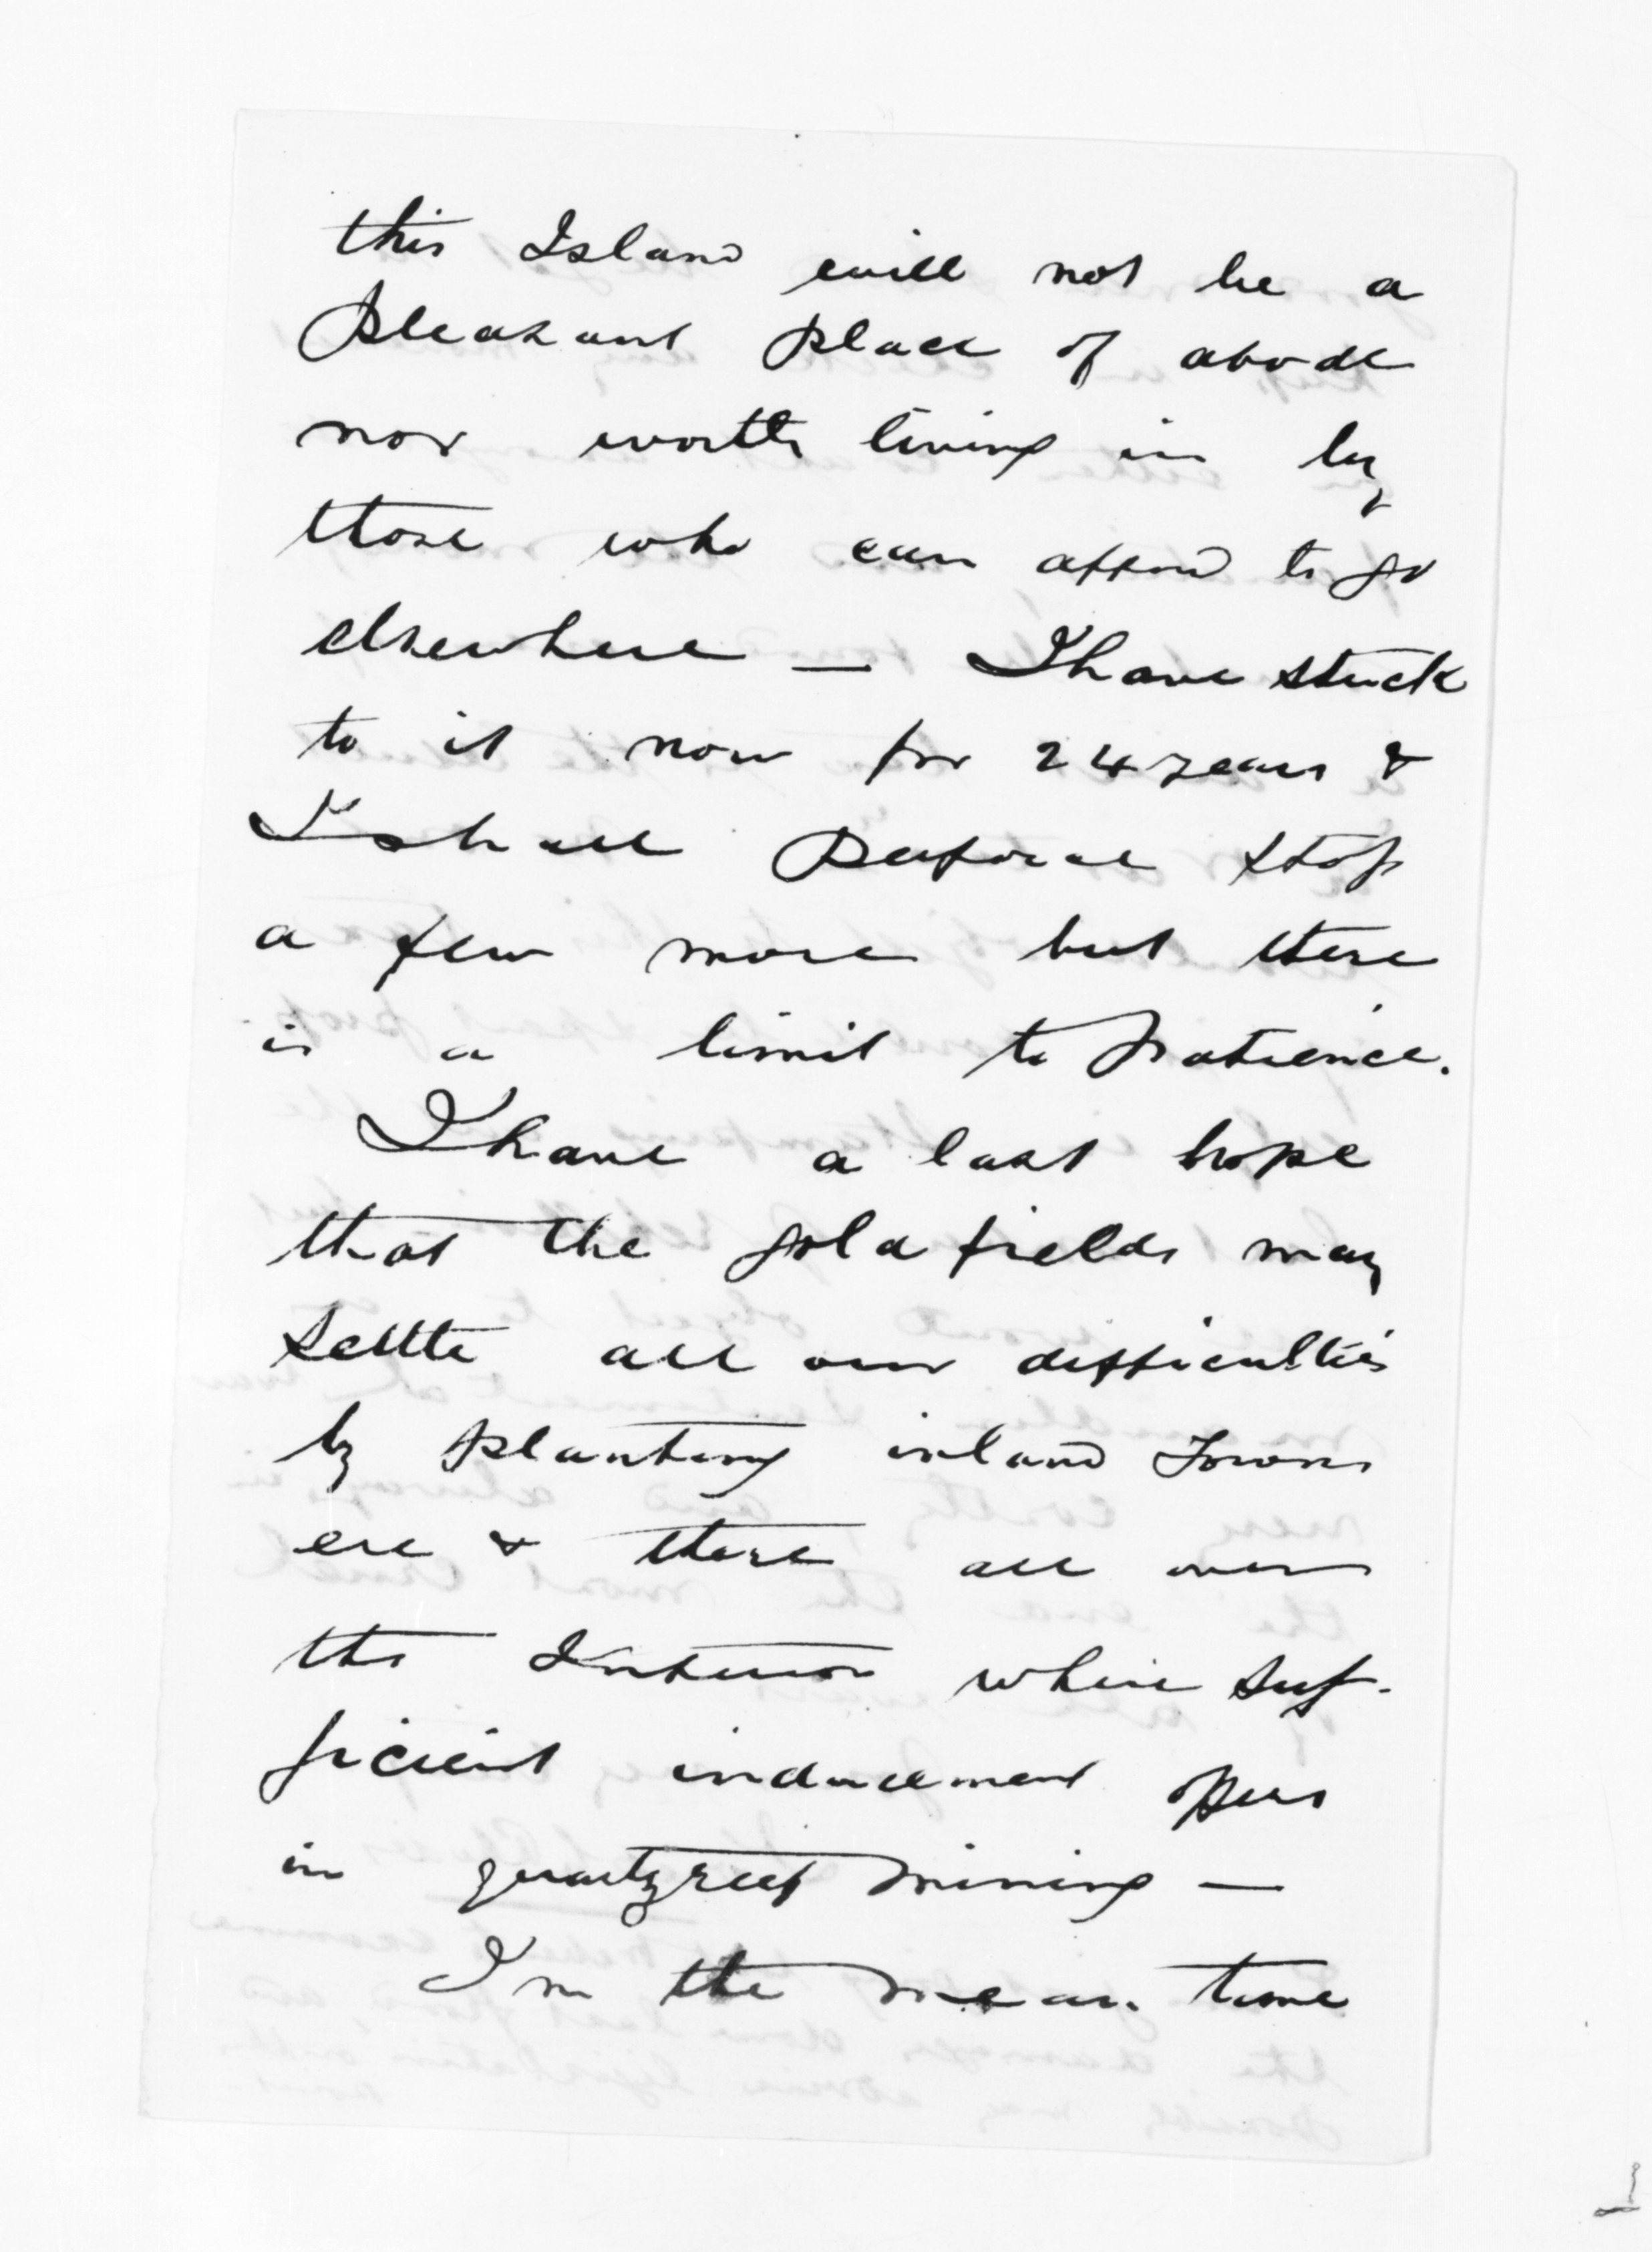 this Island will not be a
pleasant place of abode
nor worth living in by
those who can afford to go
elsewhere — I have stuck
to it now for 24 years &
I shall perforce stop
a few more but there
is a limit to patience.
I have a last hope
that the gold fields may
settle all our difficulties
by planting inland Towns
ere & there all over
the Interior where suf-
ficient inducement offers
in quartz reef mining —
In the mean time